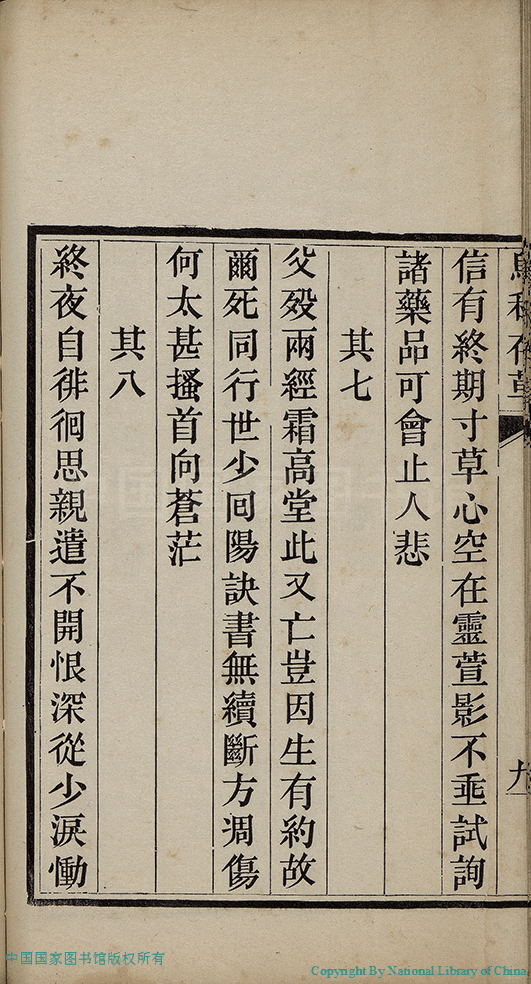 信有終期寸草心空在靈萱影不垂試詢
諸藥品可會止人悲
其七
父歿兩經霜高堂此又亡豈因生有約故
爾死同行世少囘陽訣書無續斷方凋傷
何太甚搔首向蒼茫
其八
終夜自徘徊思親遣不開恨深從少淚慟
中国国家图书馆版权所有
Copyright By National Library of China